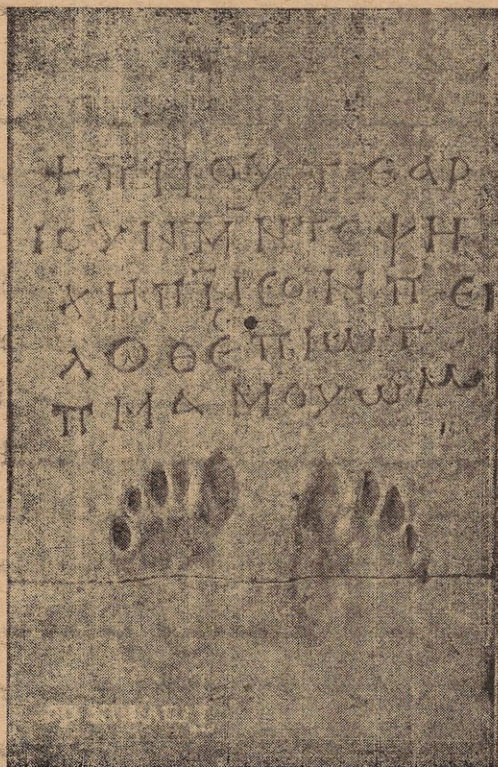 + ⲠⲚⲞⲨⲦⲈⲀⲢ
ⲒⲞⲨⲚⲘ̄ⲚⲦⲈⲮⲎ
ⲬⲎⲠⲚ̄ⲤⲞⲚⲠⲈⲒ
ⲖⲞⲐⲈⲤⲠⲒⲰⲦ
ⲠⲘⲀⲘⲞⲨⲰⲘ